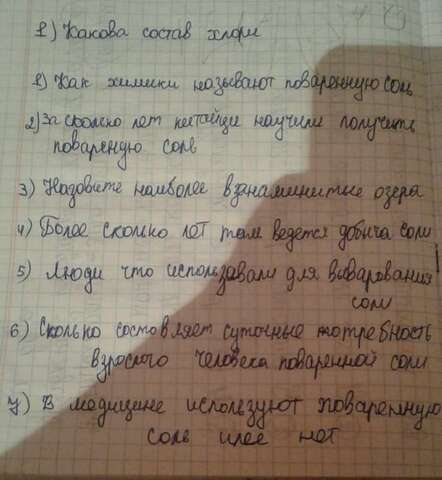 1) Какова состав хлори
1) Как химики называют поваренную соль
2) За сколько лет китайци научили получить
поварендую соль
3) Назовите наиболее взнаминитые озера
4) Более сколько лет там ведется добыча соли
5) Люди что использавали для выварования
соли
6) Сколько состовляет суточные потребность
взрослого человека поваренной соли
7) В медицине используют поваренную
соль илее нет